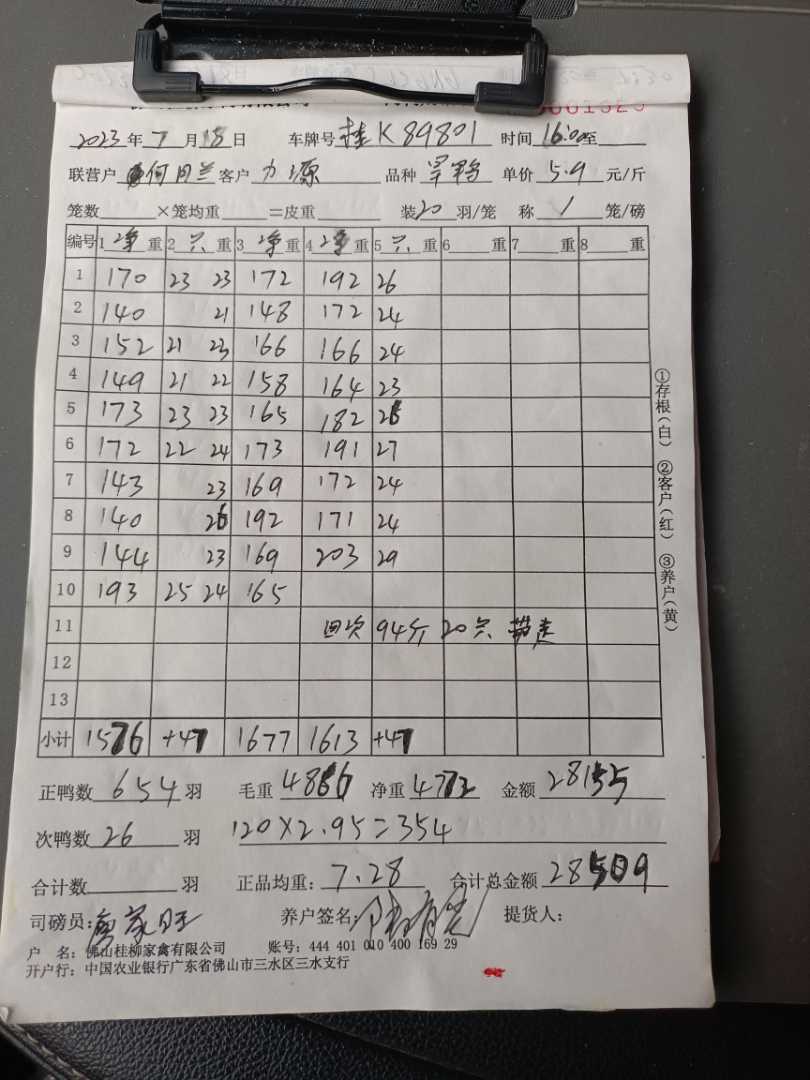 2023 年 7 月 18 日 车牌号 桂K89801 时间 16:00 至
联营户 何月兰 客户 力源 品种 单价 5.9 元/斤
笼数 ×笼均重 =皮重 装 20 羽/笼 称 1 笼/磅
编号 1 净重 2 只重 3 净重 4 净重 5 只重 6 重 7 重 8 重
1 170 23 23 172 192 26
2 140 21 148 172 24
3 152 21 23 166 166 24
4 149 21 22 158 164 23
5 173 23 23 165 182 26
6 172 22 24 173 191 27
7 143 23 169 172 24
8 140 26 192 171 24
9 144 23 169 203 29
10 193 25 24 165
11 回次 94斤 20只 带走
12
13
小计 1576 +47 1677 1613 +47
正鸭数 654 羽 毛重 4866 净重 4772 金额 28155
次鸭数 26 羽 120×2.95=354
合计数 羽 正品均重: 7.28 合计总金额 28509
司磅员: 养户签名: 提货人:
户 名: 佛山桂柳家禽有限公司 账号: 444 401 010 400 169 29
开户行: 中国农业银行广东省佛山市三水区三水支行
①存根(白) ②客户(红) ③养户(黄)